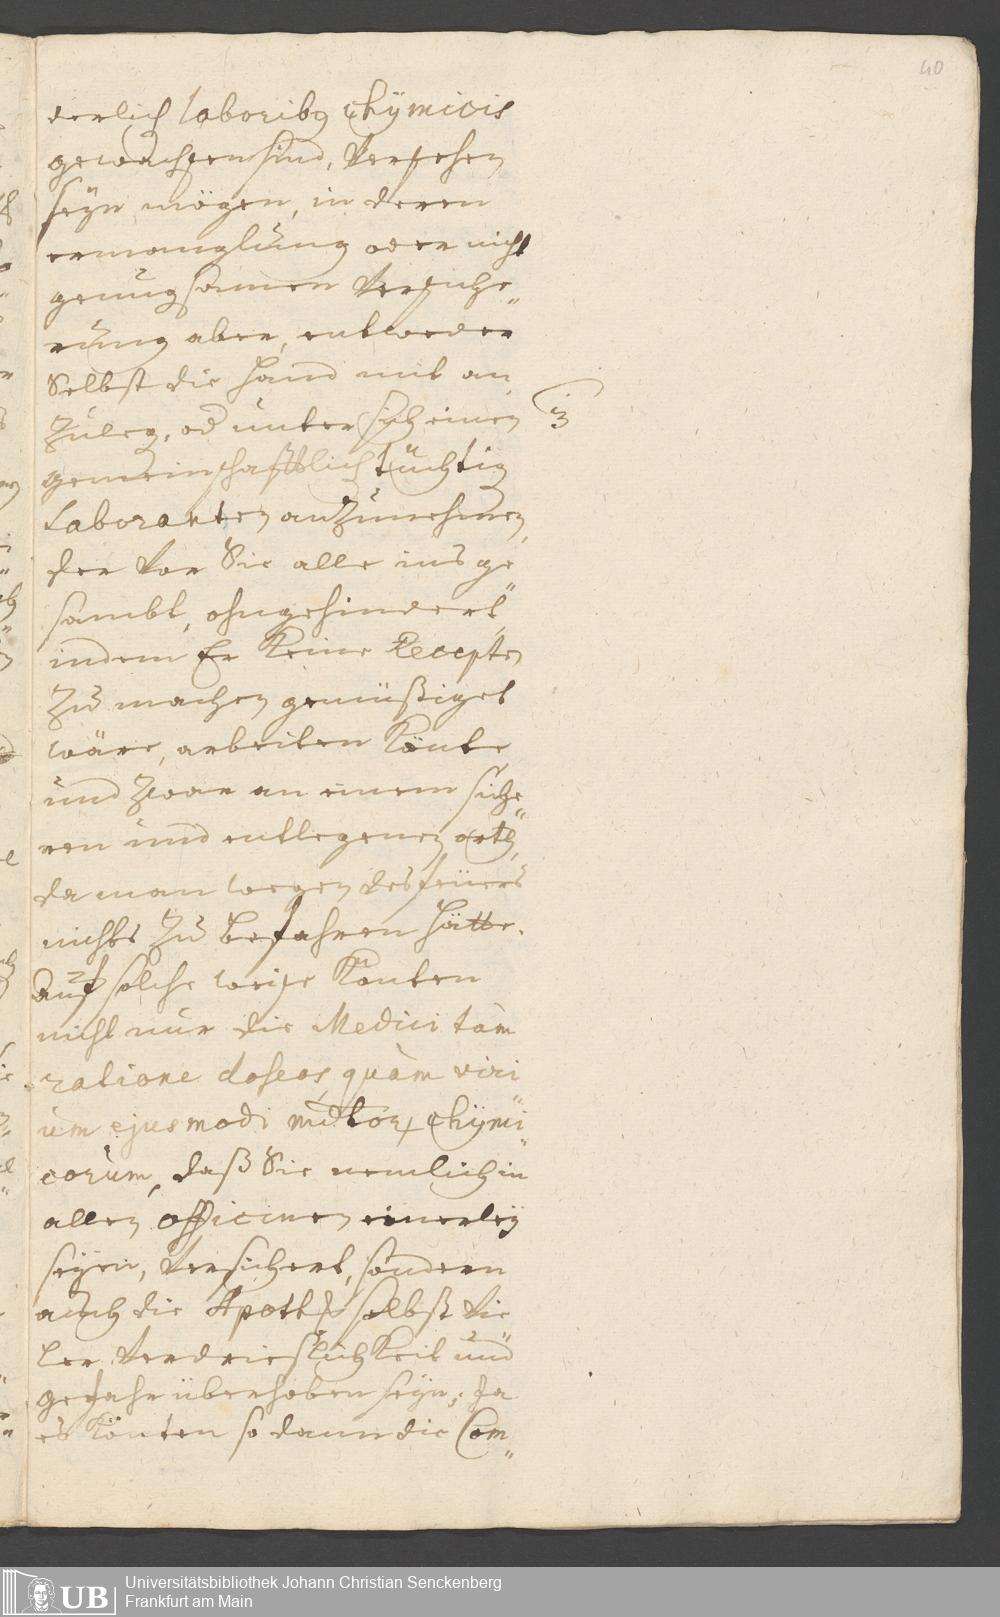 40
derlich laboribq chÿmicis
gewachsen sind, Versehen
seÿn mögen, in deren
ermanglung oder nicht
genugsamen Versiche„
rung aber, entweder
Selbst die Hand mit an
zuleg, od unter sich einen
gemeinschafftlich tüchtig
Laboranten anzunehmen,
der Vor Sie alle ins ge„
sambt, ohngehindert,
indem Er Keine Recepten
zu machen gemüßiget
wäre, arbeiten Könte,
und zwar an einem siche„
ren und entlegenen orth,
da man wegen des feüers
nichts zu befahren hätte.
Auf solche weise Könten
nicht nur die Medici tàm
ratione doseos, quàm viri„
um ejusmodi chÿmi„
corum, daß Sie nemlich in
allen officinen einerleÿ
seÿen, Versichert, sondern
auch die Apoth selbst Vie„
ler Verdrieslichkeit und
gefahr überhoben seÿn; Ja
es Könten so dann die Com„
UB
Universitätsbibliothek Johann Christian Senckenberg
Frankfurt am Main